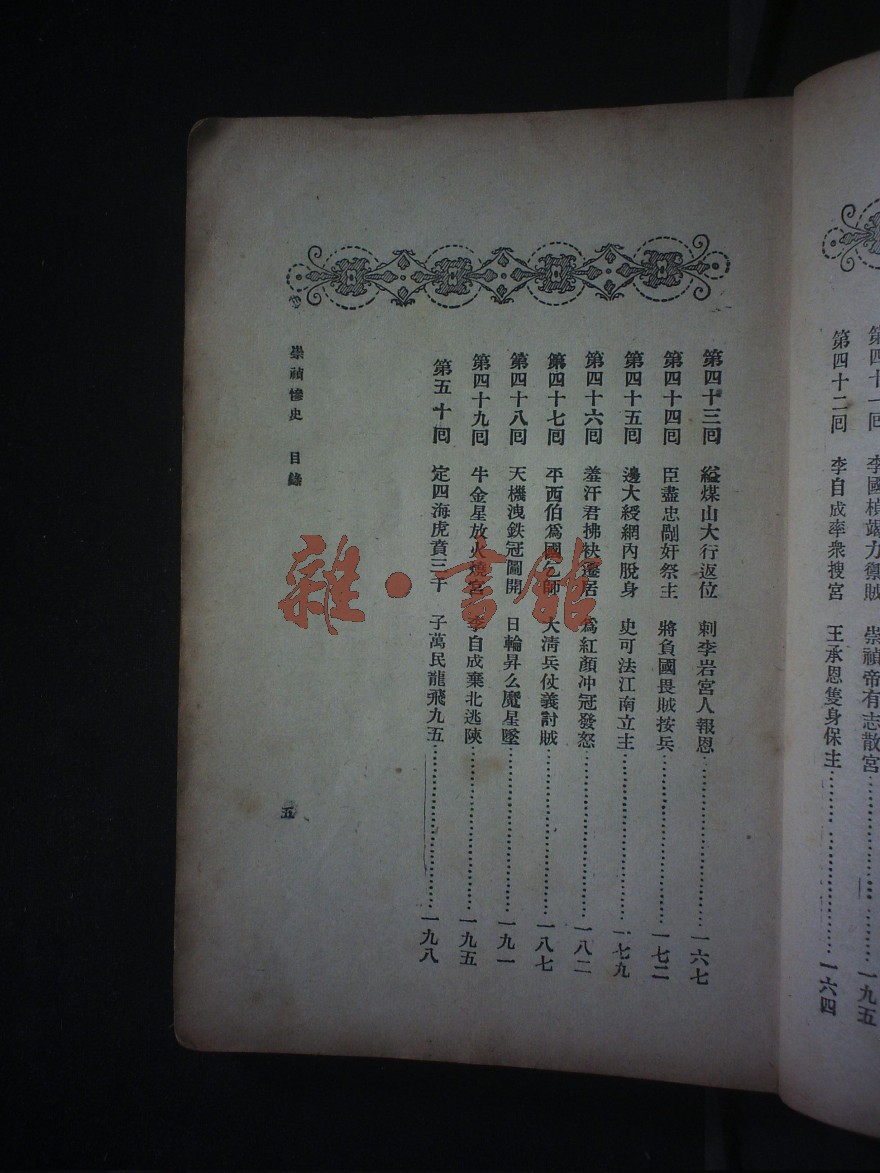 第四十一回 李國楨竭力禦賊 崇禎帝有志散宮 一九五
第四十二回 李自成率衆搜宮 王承恩隻身保主 一六四
第四十三回 縊煤山大行返位 刺李岩宮人報恩 一六七
第四十四回 臣盡忠劚奸祭主 將負國畏賊按兵 一七二
第四十五回 邊大綬網內脫身 史可法江南立主 一七九
第四十六回 羞汗君拂袂遷居 爲紅顏冲冠發怒 一八二
第四十七回 平西伯爲國乞師 大淸兵仗義討賊 一八七
第四十八回 天機洩鉄冠圖開 日輪昇么魔星墜 一九一
第四十九回 牛金星放火燒宮 李自成棄北逃陝 一九五
第五十回 定四海虎賁三千 子萬民龍飛九五 一九八
崇禎慘史 目錄
五
雜·書館